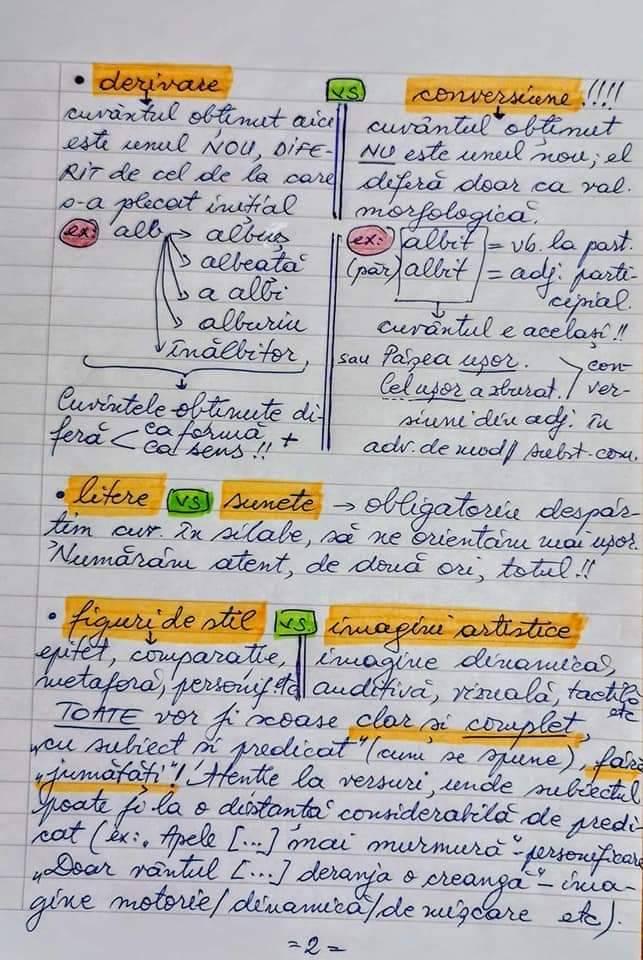 • derivare
cuvântul obținut aici
este unul NOU, DIFE-
RIT de cel de la care
s-a plecat inițial
ex: alb → albuș
albeață
a albi
alburiu
înălbitor,
Cuvintele obținute di-
feră < ca formă +
ca sens!!
vs
conversiune!!!!
cuvântul obținut
NU este unul nou; el
diferă doar ca val.
morfologică.
ex: albit = vb. la part.
(păr) albit = adj. parti-
cipial.
cuvântul e același!!
sau Pășea ușor. > con-
Cel ușor a zburat. ver-
siune din adj. în
adv. de mod/ subst. com.
• litere vs sunete → obligatoriu despăr-
țim cuv. în silabe, să ne orientăm mai ușor.
Numărăm atent, de două ori, totul!!
• figuri de stil vs imagini artistice
epitet, comparație,
metaforă, personif. etc
imagine dinamică,
auditivă, vizuală, tactilă
etc
TOATE vor fi scoase clar și complet,
„cu subiect și predicat” (cum se spune), fără
„jumătăți”! Atenție la versuri, unde subiectul
poate fi la o distanță considerabilă de predi-
cat (ex: „Apele [...] mai murmură” - personificare
„Doar vântul [...] deranja o creangă” - ima-
gine motorie/dinamică/de mișcare etc).
=2=